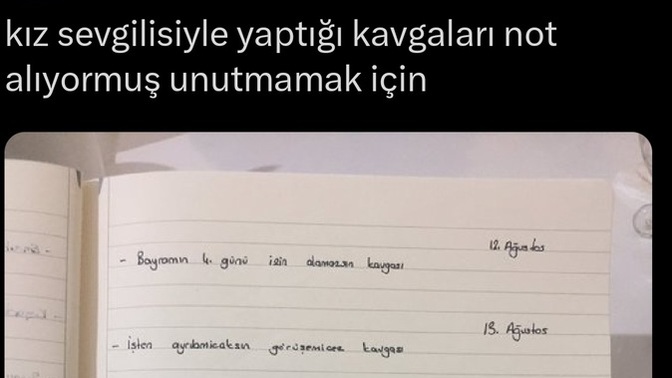 kız sevgilisiyle yaptığı kavgaları not
alıyormuş unutmamak için
12. Ağustos
- Bayramın 4. günü izin alamazsın kavgası
13. Ağustos
- İşten ayrılamicaksın görüşemicez kavgası